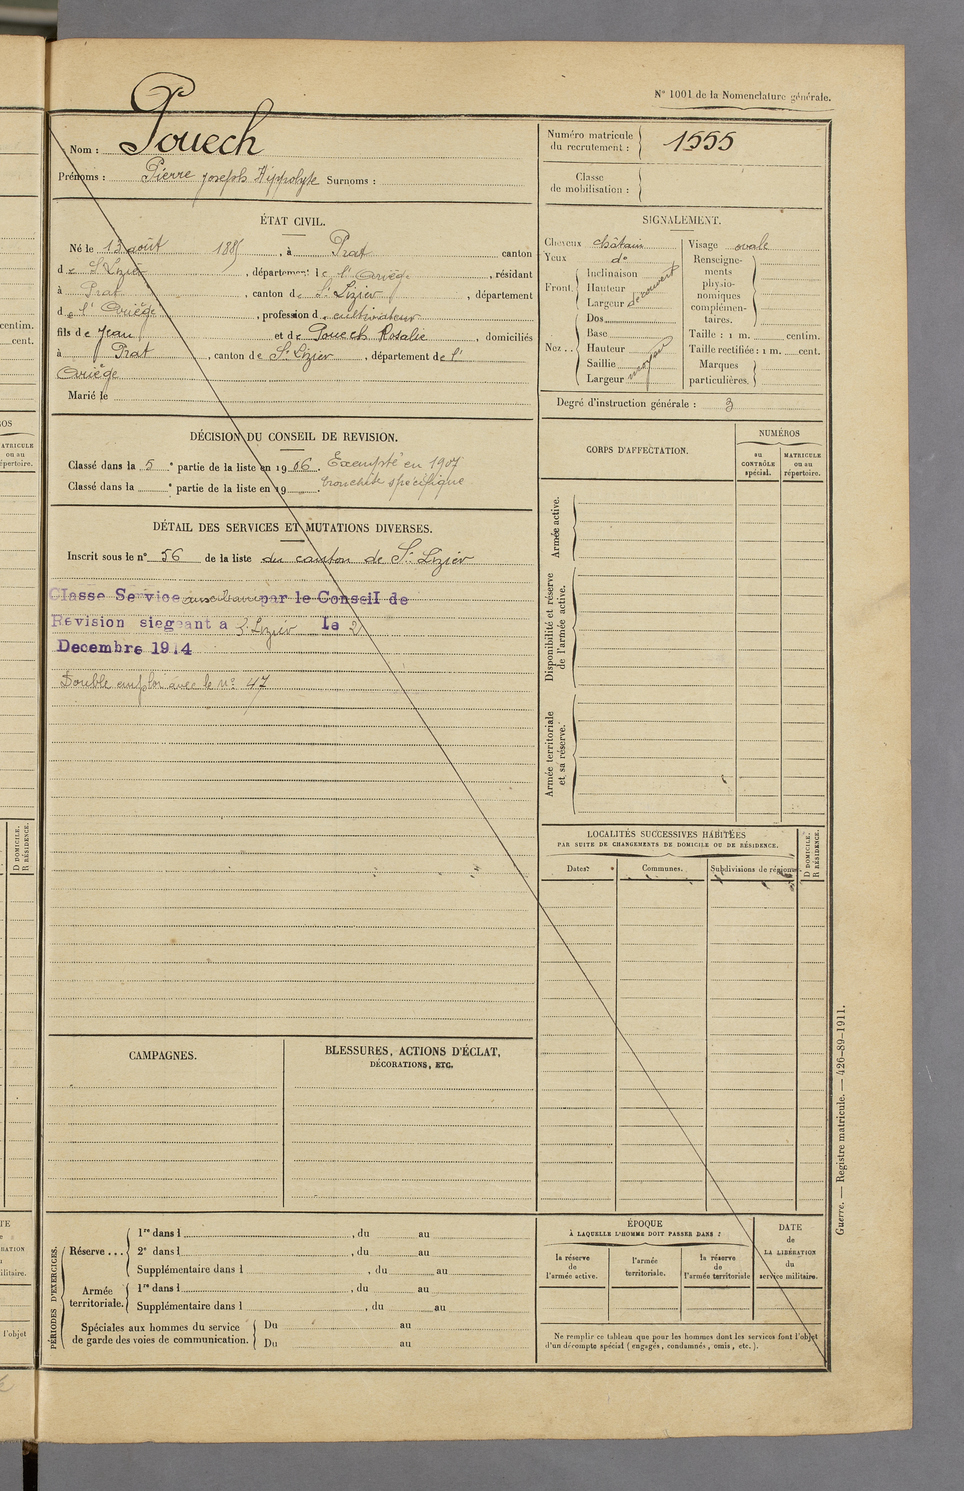 N° 1001 de la Nomenclature générale.
Nom : Pouech
Prénoms : Pierre Joseph Hippolyte Surnoms :
Numéro matricule du recrutement : 1555
Classe de mobilisation :
ÉTAT CIVIL.
Né le 13 août 188 , à Prat canton
de St Lizier , département de l'Ariège , résidant
à Prat , canton de St Lizier , département
de l'Ariège , profession de cultivateur
fils de Jean et de Pouech Rosalie , domiciliés
à Prat , canton de St Lizier , département de l'
Ariège
Marié le
SIGNALEMENT.
Cheveux châtain
Yeux do
Front. Inclinaison
Hauteur
Largeur
découvert
Nez .. Dos
Base
Hauteur
Saillie
Largeur
moyen
Visage ovale
Renseigne-
ments
physio-
nomiques
complémen-
taires.
Taille : 1 m. centim.
Taille rectifiée : 1 m. cent.
Marques
particulières.
Degré d'instruction générale : 3
DÉCISION DU CONSEIL DE REVISION.
Classé dans la 5e partie de la liste en 1906. Exempté en 1907
Classé dans la e partie de la liste en 19 . bronchite spécifique
DÉTAIL DES SERVICES ET MUTATIONS DIVERSES.
Inscrit sous le n° 56 de la liste du canton de St Lizier
Classe Service auxiliaire par le Conseil de
Revision siegeant a St Lizier le 2
Decembre 1914
Double emploi avec le n° 47
CORPS D'AFFECTATION.
NUMÉROS
au CONTRÔLE spécial.
MATRICULE ou au répertoire.
Armée active.
Disponibilité et réserve
de l'armée active.
Armée territoriale
et sa réserve.
LOCALITÉS SUCCESSIVES HABITÉES
PAR SUITE DE CHANGEMENTS DE DOMICILE OU DE RÉSIDENCE.
Dates.
Communes.
Subdivisions de régions.
D DOMICILE.
R RÉSIDENCE.
CAMPAGNES.
BLESSURES, ACTIONS D'ÉCLAT,
DÉCORATIONS, ETC.
PÉRIODES D'EXERCICES.
Réserve ... 1re dans l , du au
2e dans l , du au
Supplémentaire dans l , du au
Armée territoriale. 1re dans l , du au
Supplémentaire dans l , du au
Spéciales aux hommes du service Du au
de garde des voies de communication. Du au
ÉPOQUE
À LAQUELLE L'HOMME DOIT PASSER DANS :
la réserve
de
l'armée active.
l'armée
territoriale.
la réserve
de
l'armée territoriale
DATE
de
LA LIBÉRATION
du
service militaire.
Ne remplir ce tableau que pour les hommes dont les services font l'objet
d'un décompte spécial (engagés, condamnés, omis, etc.).
Guerre. — Registre matricule. — 426-89-1911.
centim.
cent.
MATRICULE
ou au
répertoire.
D DOMICILE.
R RÉSIDENCE.
l'objet